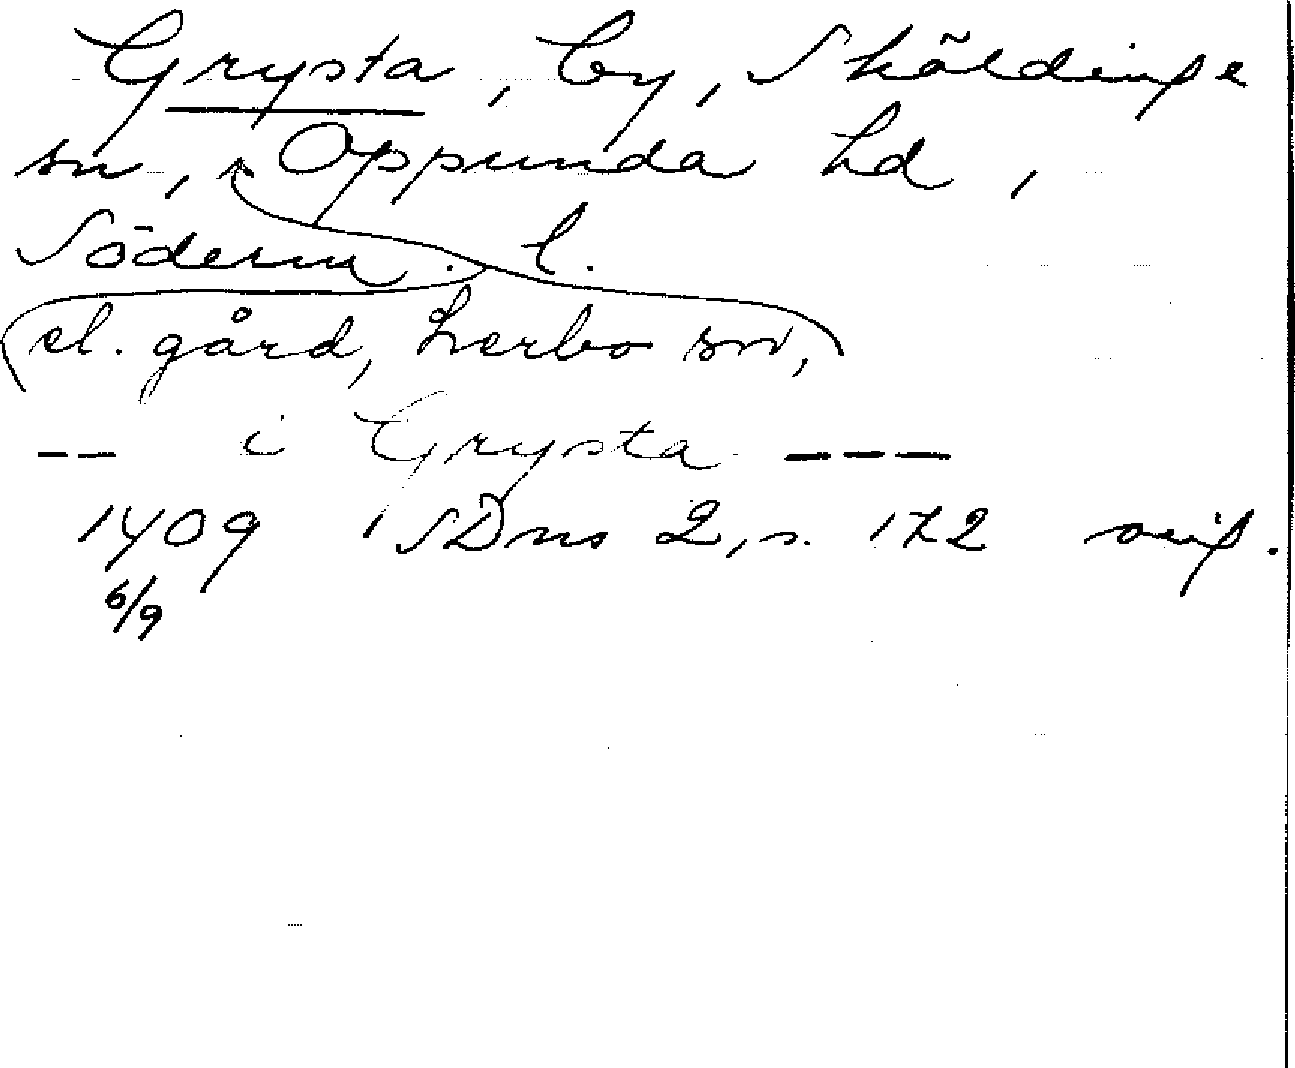 Grysta, by, Sköldinge
sn, Oppunda hd,
Söderm. l.
el. gård, Lerbo sn,
-- i Grysta ---
1409 SDns 2, s. 172 orig.
6/9